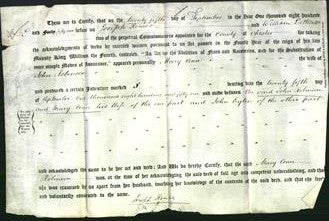 These are to Certify, that on the Twenty fifth day of September in the Year One thousand eight hundred
and Forty one before us Joseph and William
two of the perpetual Commissioners appointed for the County of Chester for taking
the acknowledgments of deeds by married women pursuant to an Act passed in the Fourth Year of the reign of his late
Majesty King William the Fourth, entitled, "An Act for the Abolition of Fines and Recoveries, and for the Substitution of
more simple Modes of Assurance," appeared personally Mary Ann the wife of
John Robinson
and produced a certain Indenture marked bearing date the twenty fifth day
of September one thousand eight hundred and forty one and made between the said John Robinson
and Mary Ann his Wife of the one part and John Taylor of the other part
and acknowledged the same to be her act and deed: And We do hereby Certify, that the said Mary Ann
Robinson was, at the time of her acknowledging the said deed of full age and competent understanding, and that
she was examined by us apart from her husband, touching her knowledge of the contents of the said deed, and that she freely
and voluntarily consented to the same.